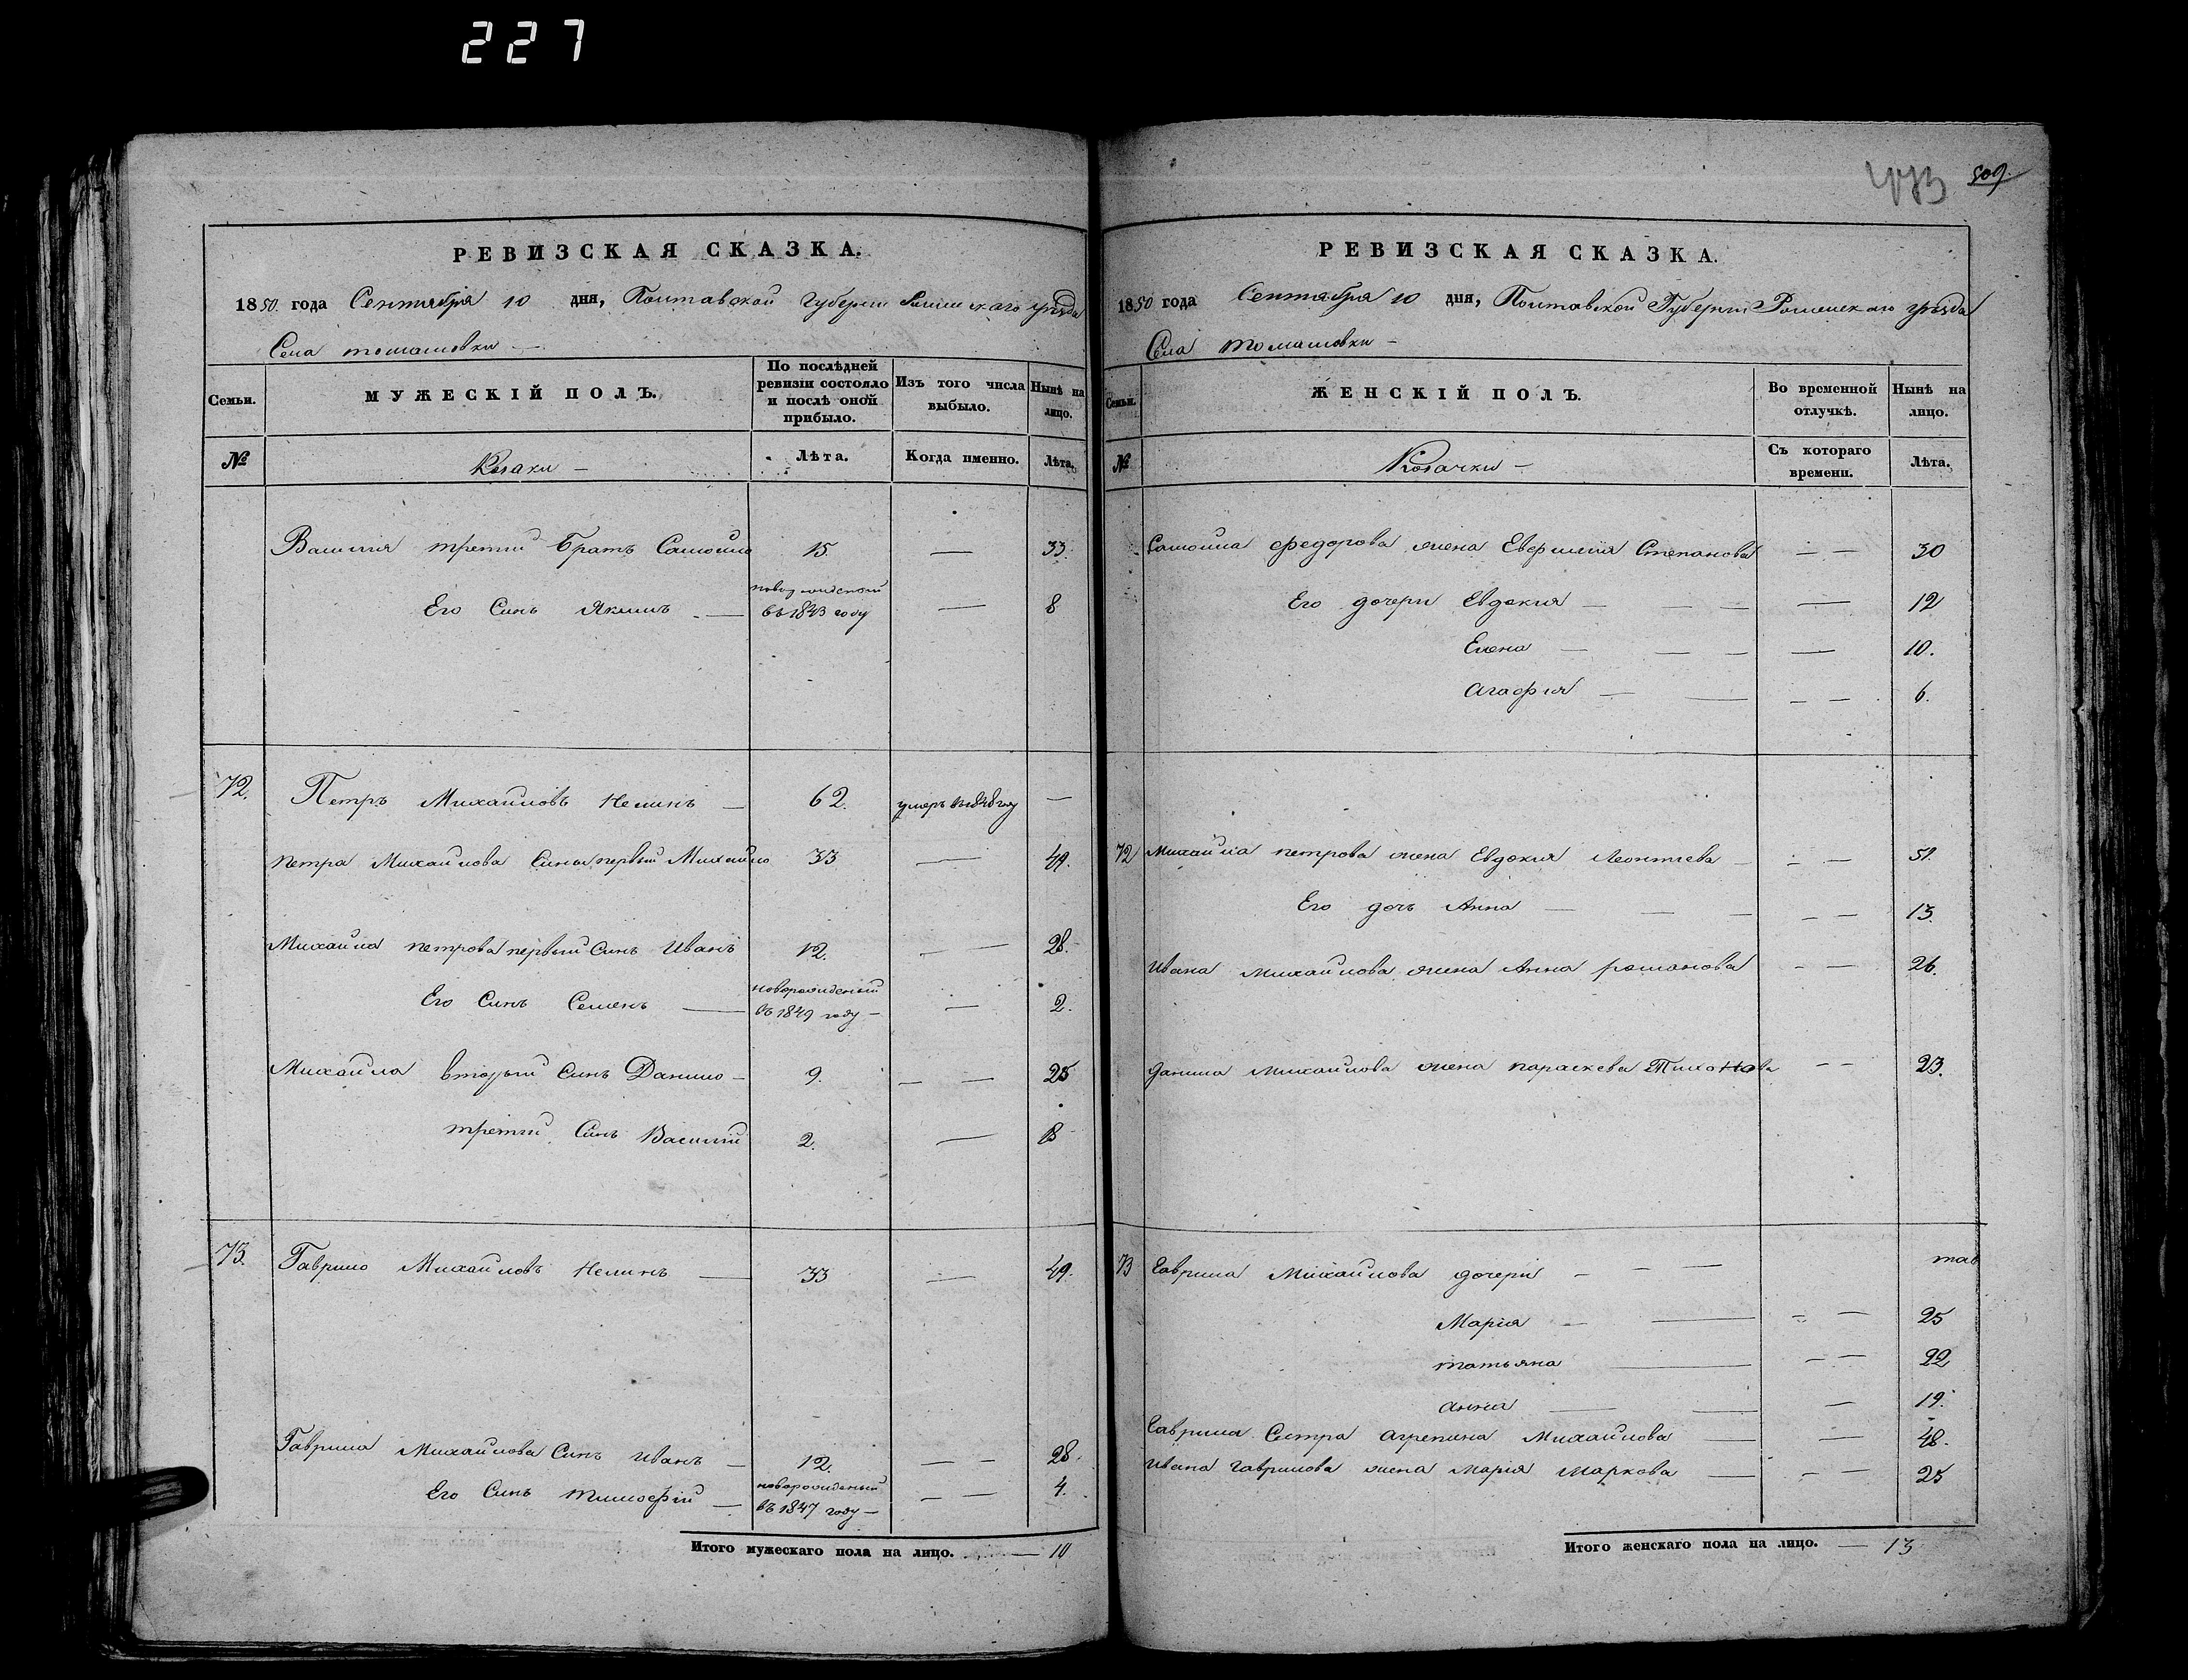 227
509.
РЕВИЗСКАЯ СКАЗКА.
1850. года Сентября 10 дня, Полтавской Губерніи Роменскаго уѣзда
Села томашовки —
Семьи. МУЖЕСКІЙ ПОЛЪ. По послѣдней ревизіи состояло и послѣ оной прибыло. Изъ того числа выбыло. Нынѣ на лицо.
№ Козаки — Лѣта. Когда именно. Лѣта.
Василія третій Братъ Самойло 15 — 33.
Его Синъ Якимъ — новорожденой въ 1843 году — 8
72. Петръ Михайловъ Нелинъ — 62. умеръ въ 1848 году —
петра Михайлова Сины первый Михайло 33 — 49.
Михайла петрова первый Синъ Иванъ 12. — 28.
Его Синъ Семенъ — новорожденый въ 1849 году — — 2.
Михайла вторый Синъ Данило — 9. — — 25
третій Синъ Василій 2. — 18
73. Гаврило Михайловъ Нелинъ — 33 — 49.
Гаврила Михайлова Синъ Иванъ — 12. — — 28.
Его Синъ Тимофѣй — новорожденый въ 1847 году — — — 4.
Итого мужескаго пола на лицо. — 10
РЕВИЗСКАЯ СКАЗКА.
1850 года Сентября 10 дня, Полтавской Губерніи Роменскаго уѣзда
Села томашовки —
Семьи. ЖЕНСКІЙ ПОЛЪ. Во временной отлучкѣ. Нынѣ на лицо.
№ Козачки — Съ котораго времени. Лѣта.
Самойла федорова жена Евфимія Степанова — — 30
Его дочери Евдокия — — — — 12
Елена — — — — 10.
Агафия — — — — 6.
72 Михайла петрова жена Евдокия Леонтиева — — — 51.
Его дочь Анна — — — — — 13.
Ивана Михайлова жена Анна романова — — 26.
Данила Михайлова жена параскева Тихонова — — 23.
73 Гаврила Михайлова дочери — — —
Марія — — — — 25
татьяна — — — 22
анна — — — 19.
Гаврила Сестра Агрепина Михайлова — — 48.
Ивана Гаврилова жена Марія Маркова — — — 25
Итого женскаго пола на лицо. — 13